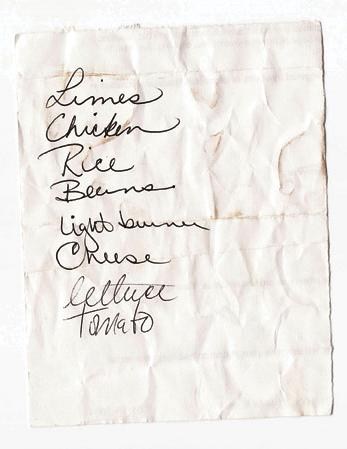 Limes
Chicken
Rice
Beans
light
Cheese
lettuce
Tomato